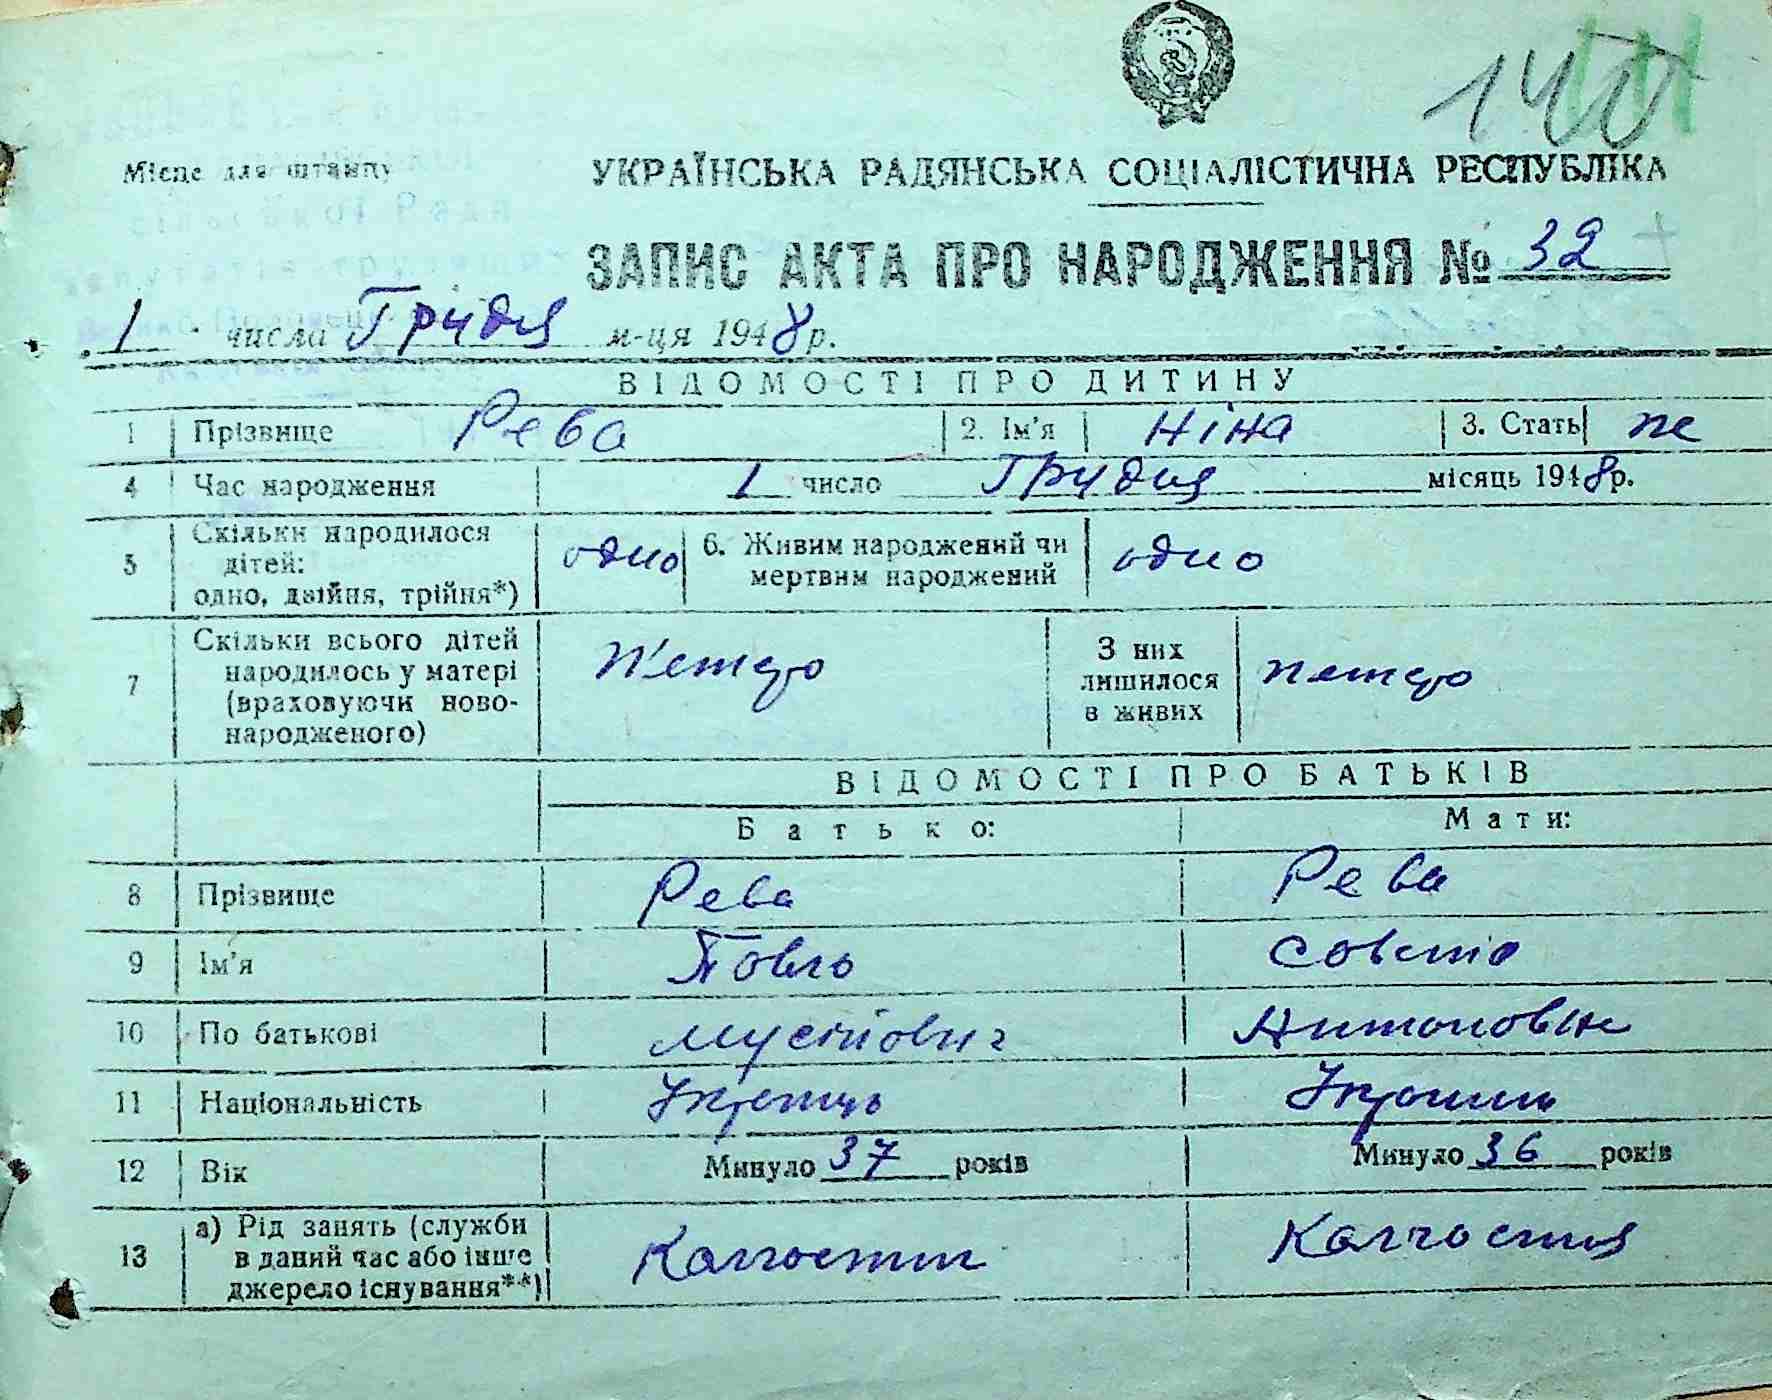 140
Місце для штампу
УКРАЇНСЬКА РАДЯНСЬКА СОЦІАЛІСТИЧНА РЕСПУБЛІКА
ЗАПИС АКТА ПРО НАРОДЖЕННЯ № 32
1 числа Грудня м-ця 1948 р.
ВІДОМОСТІ ПРО ДИТИНУ
1 Прізвище Рева 2. Ім'я Ніна 3. Стать
4 Час народження 1 число Грудня місяць 1948 р.
5 Скільки народилося дітей: одно, двійня, трійня*) одно 6. Живим народжений чи мертвим народжений одно
7 Скільки всього дітей народилось у матері (враховуючи новонародженого) З них лишилося в живих
ВІДОМОСТІ ПРО БАТЬКІВ
Батько: Мати:
8 Прізвище Рева Рева
9 Ім'я Повло
10 По батькові Антоновна
11 Національність
12 Вік Минуло 37 років Минуло 36 років
13 а) Рід занять (служби в даний час або інше джерело існування**)